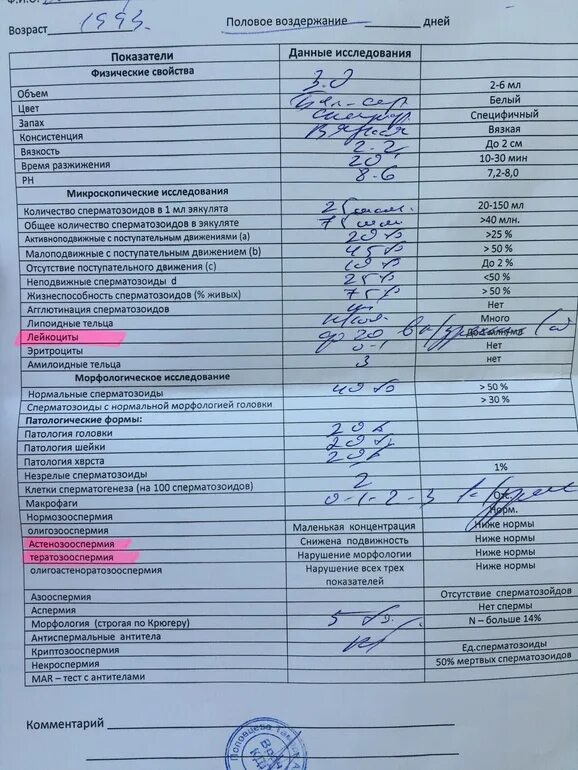 Возраст 1993.
Половое воздержание ____ дней
Показатели Данные исследования
Физические свойства
Объем 3.0 2-6 мл
Цвет Белый
Запах Специфичный
Консистенция вязкая Вязкая
Вязкость 2-2 До 2 см
Время разжижения 20 10-30 мин
PH 8-6 7,2-8,0
Микроскопические исследования
Количество сперматозоидов в 1 мл эякулята 25 20-150 мл
Общее количество сперматозоидов в эякуляте 75 >40 млн.
Активноподвижные с поступательным движениями (a) 20% >25 %
Малоподвижные с поступательным движением (b) 45% > 50 %
Отсутствие поступательного движения (c) 10% До 2 %
Неподвижные сперматозоиды d 25% <50 %
Жизнеспособность сперматозоидов (% живых) 75% > 50 %
Агглютинация сперматозоидов Нет
Липоидные тельца Много
Лейкоциты до 20 в п/зрения
Эритроциты 0-1 Нет
Амилоидные тельца 3 нет
Морфологическое исследование
Нормальные сперматозоиды 40% > 50 %
Сперматозоиды с нормальной морфологией головки > 30 %
Патологические формы:
Патология головки 20%
Патология шейки 20%
Патология хврста 20%
Незрелые сперматозоиды 1%
Клетки сперматогенеза (на 100 сперматозоидов) 2
Макрофаги 0-1-2-3
Нормозооспермия Норм.
олигозооспермия Маленькая концентрация Ниже нормы
Астенозооспермия Снижена подвижность Ниже нормы
тератозооспермия Нарушение морфологии Ниже нормы
олигоастеноратозооспермия Нарушение всех трех показателей Ниже нормы
Азооспермия Отсутствие сперматозойдов
Аспермия Нет спермы
Морфология (строгая по Крюгеру) 5 N – больше 14%
Антиспермальные антитела
Криптозооспермия Ед.сперматозоиды
Некроспермия 50% мертвых сперматозоидов
MAR – тест с антителами
Комментарий